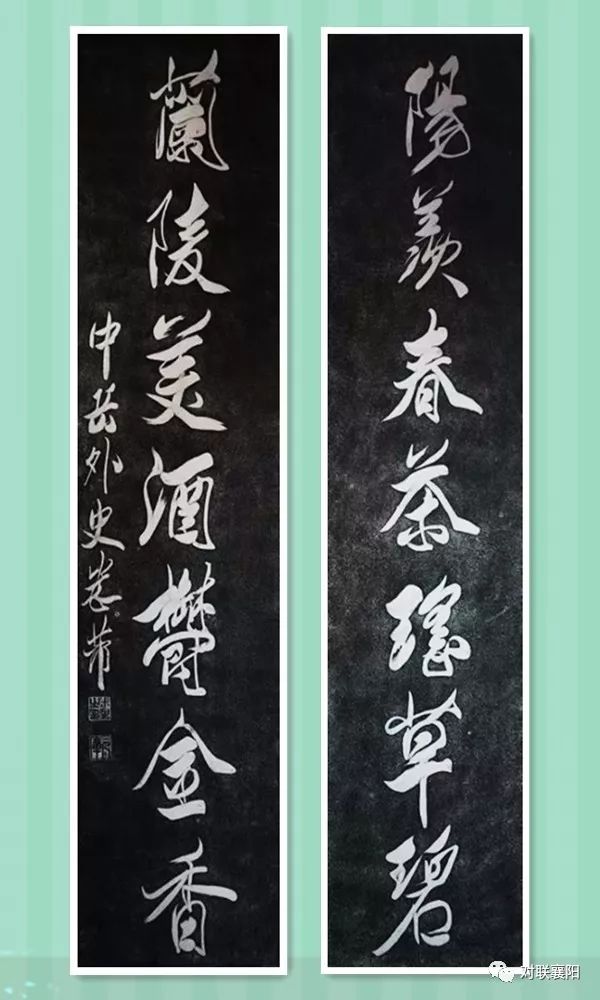 陽羨春茶瑤草碧
蘭陵美酒鬱金香
中岳外史米芾
对联襄阳